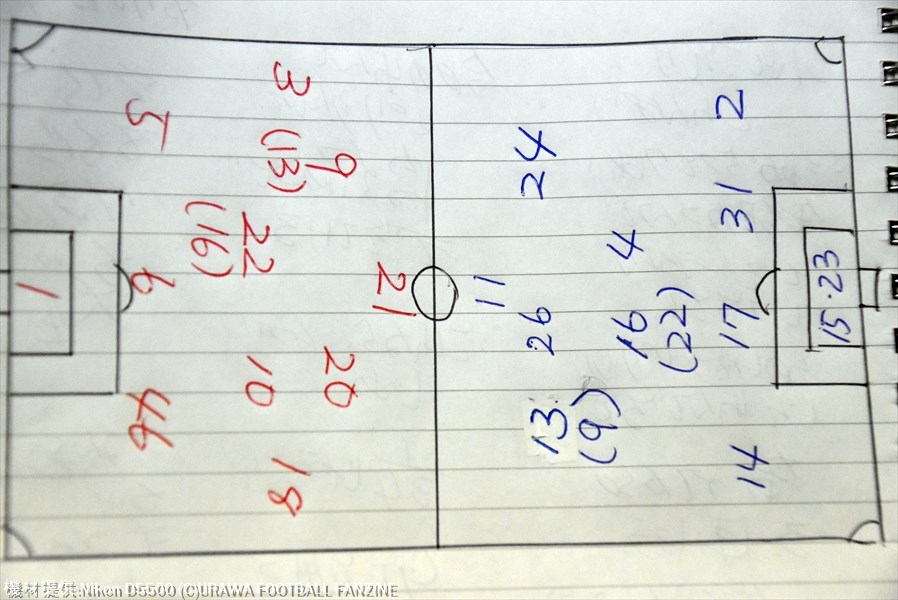 3
5
9
(13)
22
(16)
6
1
21
20
10
46
18
2
24
31
4
11
15・23
26
16
(22)
17
13
(9)
14
機材提供:Nikon D5500 (C)URAWA FOOTBALL FANZINE